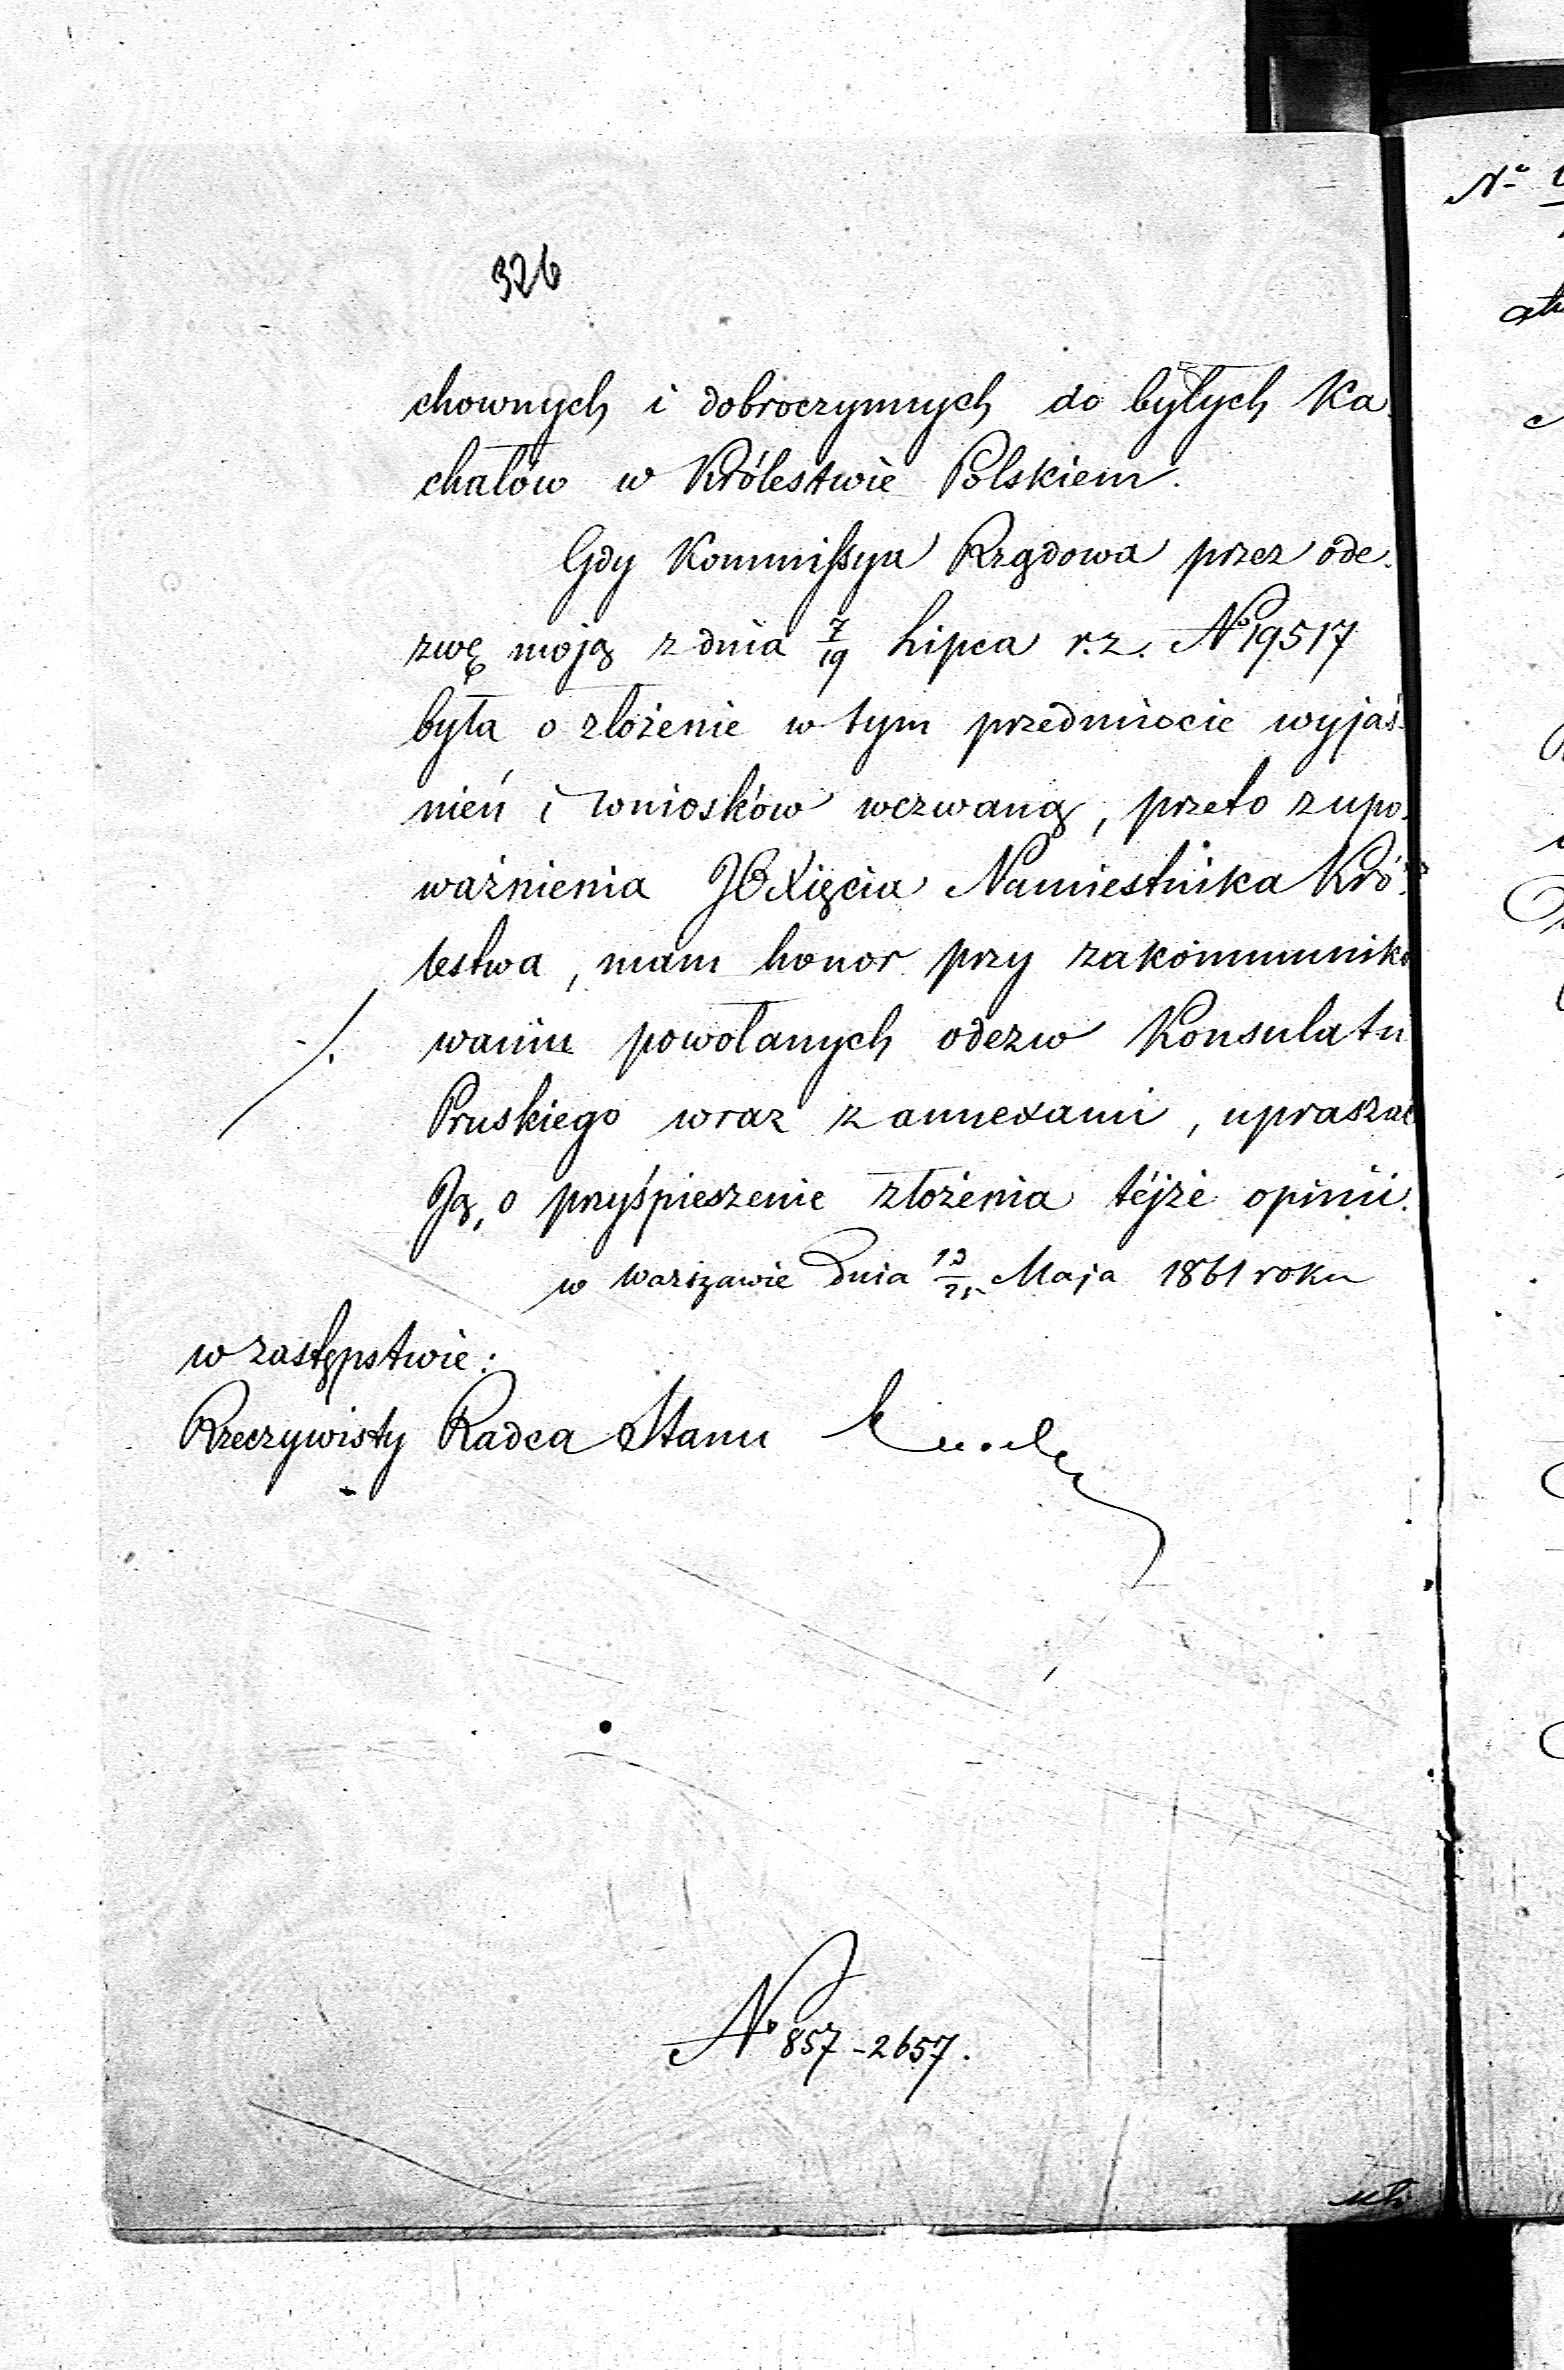 326
chownych i dobroczynnych do byłych Ka-
chałów w Królestwie Polskiem.
Gdy Kommissya Rządowa przez ode-
zwę moją z dnia 7/19 Lipca r. z. No 19517
była o złożenie w tym przedmiocie wyjaś-
nień i wniosków wezwaną, przeto z upo-
ważnienia JO Xięcia Namiestnika Kró-
lestwa, mam honor przy zakommuniko
waniu powołanych odezw Konsulatu
Pruskiego wraz z annexami, upraszać
Ją, o przyśpieszenie złożenia téjże opinii.
w Warszawie dnia 13/25 Maja 1861 roku
w zastępstwie:
Rzeczywisty Radca Stanu
No 857-2657.